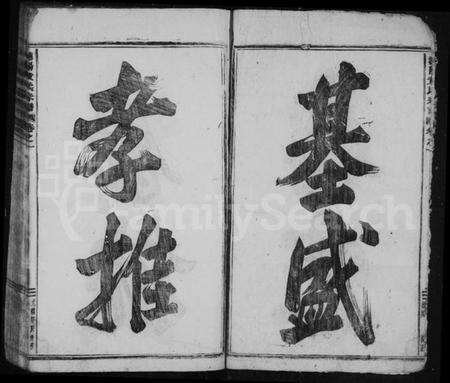 基盛
孝推
FamilySearch